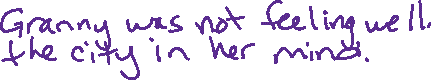 Granny was not feeling well.
the city in her mind.